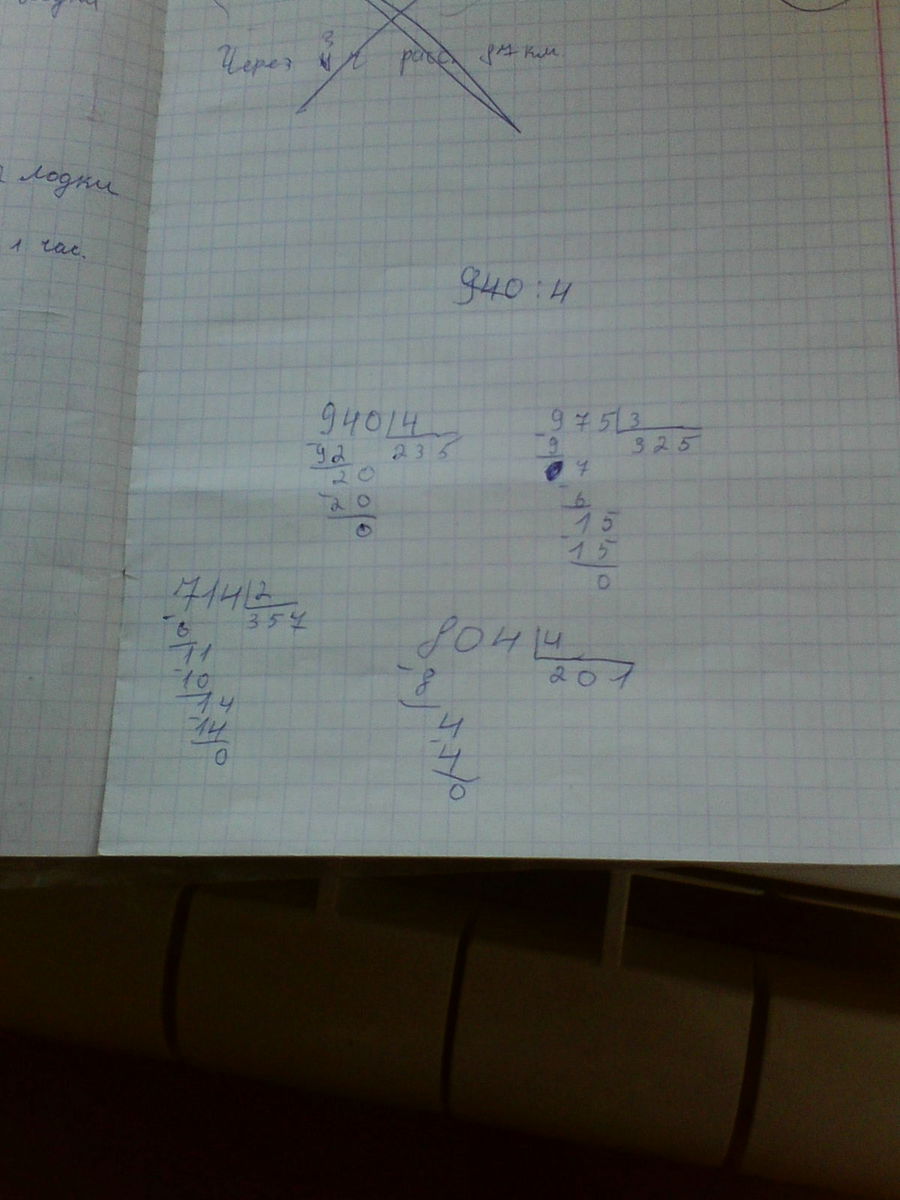 лодки
1 час.
Через 3 ч расс. 87 км.
940 : 4
940 4
92 235
20
20
0
975 3
9 325
7
6
15
15
0
714 2
6 357
11
10
14
14
0
804 4
8 201
4
4
0